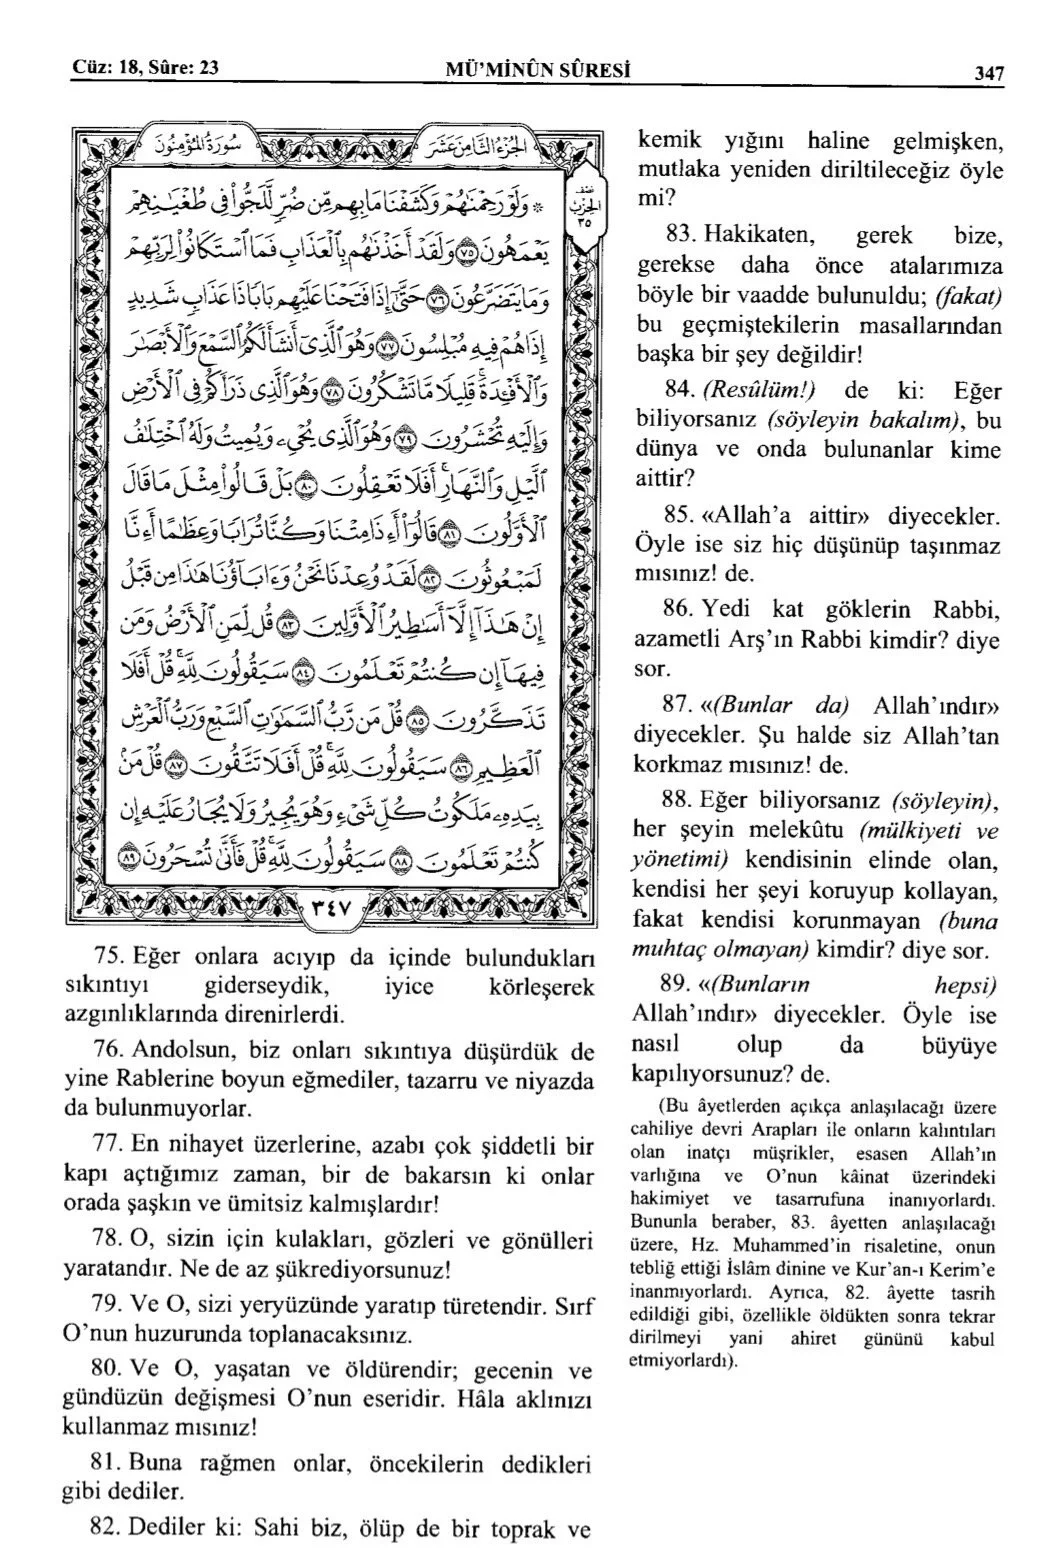 Cüz: 18, Sûre: 23
MÜ’MİNÛN SÛRESİ
347
سُورَةُ الْمُؤْمِنُونَ
الجُزْءُ الثَّامِنَ عَشَرَ
نصف
الحزب
٣٥
* وَلَوْ رَحِمْنَاهُمْ وَكَشَفْنَا مَا بِهِم مِّن ضُرٍّ لَّلَجُّوا۟ فِى طُغْيَٰنِهِمْ
يَعْمَهُونَ ﴿٧٥﴾ وَلَقَدْ أَخَذْنَٰهُم بِٱلْعَذَابِ فَمَا ٱسْتَكَانُوا۟ لِرَبِّهِمْ
وَمَا يَتَضَرَّعُونَ ﴿٧٦﴾ حَتَّىٰٓ إِذَا فَتَحْنَا عَلَيْهِم بَابًا ذَا عَذَابٍ شَدِيدٍ
إِذَا هُمْ فِيهِ مُبْلِسُونَ ﴿٧٧﴾ وَهُوَ ٱلَّذِىٓ أَنشَأَ لَكُمُ ٱلسَّمْعَ وَٱلْأَبْصَٰرَ
وَٱلْأَفْـِٔدَةَ ۚ قَلِيلًا مَّا تَشْكُرُونَ ﴿٧٨﴾ وَهُوَ ٱلَّذِى ذَرَأَكُمْ فِى ٱلْأَرْضِ
وَإِلَيْهِ تُحْشَرُونَ ﴿٧٩﴾ وَهُوَ ٱلَّذِى يُحْىِۦ وَيُمِيتُ وَلَهُ ٱخْتِلَٰفُ
ٱلَّيْلِ وَٱلنَّهَارِ ۚ أَفَلَا تَعْقِلُونَ ﴿٨٠﴾ بَلْ قَالُوا۟ مِثْلَ مَا قَالَ
ٱلْأَوَّلُونَ ﴿٨١﴾ قَالُوٓا۟ أَءِذَا مِتْنَا وَكُنَّا تُرَابًا وَعِظَٰمًا أَءِنَّا
لَمَبْعُوثُونَ ﴿٨٢﴾ لَقَدْ وُعِدْنَا نَحْنُ وَءَابَآؤُنَا هَٰذَا مِن قَبْلُ
إِنْ هَٰذَآ إِلَّآ أَسَٰطِيرُ ٱلْأَوَّلِينَ ﴿٨٣﴾ قُل لِّمَنِ ٱلْأَرْضُ وَمَن
فِيهَآ إِن كُنتُمْ تَعْلَمُونَ ﴿٨٤﴾ سَيَقُولُونَ لِلَّهِ ۚ قُلْ أَفَلَا
تَذَكَّرُونَ ﴿٨٥﴾ قُلْ مَن رَّبُّ ٱلسَّمَٰوَٰتِ ٱلسَّبْعِ وَرَبُّ ٱلْعَرْشِ
ٱلْعَظِيمِ ﴿٨٦﴾ سَيَقُولُونَ لِلَّهِ ۚ قُلْ أَفَلَا تَتَّقُونَ ﴿٨٧﴾ قُلْ مَنۢ
بِيَدِهِۦ مَلَكُوتُ كُلِّ شَىْءٍ وَهُوَ يُجِيرُ وَلَا يُجَارُ عَلَيْهِ إِن
كُنتُمْ تَعْلَمُونَ ﴿٨٨﴾ سَيَقُولُونَ لِلَّهِ ۚ قُلْ فَأَنَّىٰ تُسْحَرُونَ ﴿٨٩﴾
٣٤٧
75. Eğer onlara acıyıp da içinde bulundukları
sıkıntıyı giderseydik, iyice körleşerek
azgınlıklarında direnirlerdi.
76. Andolsun, biz onları sıkıntıya düşürdük de
yine Rablerine boyun eğmediler, tazarru ve niyazda
da bulunmuyorlar.
77. En nihayet üzerlerine, azabı çok şiddetli bir
kapı açtığımız zaman, bir de bakarsın ki onlar
orada şaşkın ve ümitsiz kalmışlardır!
78. O, sizin için kulakları, gözleri ve gönülleri
yaratandır. Ne de az şükrediyorsunuz!
79. Ve O, sizi yeryüzünde yaratıp türetendir. Sırf
O’nun huzurunda toplanacaksınız.
80. Ve O, yaşatan ve öldürendir; gecenin ve
gündüzün değişmesi O’nun eseridir. Hâla aklınızı
kullanmaz mısınız!
81. Buna rağmen onlar, öncekilerin dedikleri
gibi dediler.
82. Dediler ki: Sahi biz, ölüp de bir toprak ve
kemik yığını haline gelmişken,
mutlaka yeniden diriltileceğiz öyle
mi?
83. Hakikaten, gerek bize,
gerekse daha önce atalarımıza
böyle bir vaadde bulunuldu; (fakat)
bu geçmiştekilerin masallarından
başka bir şey değildir!
84. (Resûlüm!) de ki: Eğer
biliyorsanız (söyleyin bakalım), bu
dünya ve onda bulunanlar kime
aittir?
85. «Allah’a aittir» diyecekler.
Öyle ise siz hiç düşünüp taşınmaz
mısınız! de.
86. Yedi kat göklerin Rabbi,
azametli Arş’ın Rabbi kimdir? diye
sor.
87. «(Bunlar da) Allah’ındır»
diyecekler. Şu halde siz Allah’tan
korkmaz mısınız! de.
88. Eğer biliyorsanız (söyleyin),
her şeyin melekûtu (mülkiyeti ve
yönetimi) kendisinin elinde olan,
kendisi her şeyi koruyup kollayan,
fakat kendisi korunmayan (buna
muhtaç olmayan) kimdir? diye sor.
89. «(Bunların hepsi)
Allah’ındır» diyecekler. Öyle ise
nasıl olup da büyüye
kapılıyorsunuz? de.
(Bu âyetlerden açıkça anlaşılacağı üzere
cahiliye devri Arapları ile onların kalıntıları
olan inatçı müşrikler, esasen Allah’ın
varlığına ve O’nun kâinat üzerindeki
hakimiyet ve tasarrufuna inanıyorlardı.
Bununla beraber, 83. âyetten anlaşılacağı
üzere, Hz. Muhammed’in risaletine, onun
tebliğ ettiği İslâm dinine ve Kur’an-ı Kerim’e
inanmıyorlardı. Ayrıca, 82. âyette tasrih
edildiği gibi, özellikle öldükten sonra tekrar
dirilmeyi yani ahiret gününü kabul
etmiyorlardı).